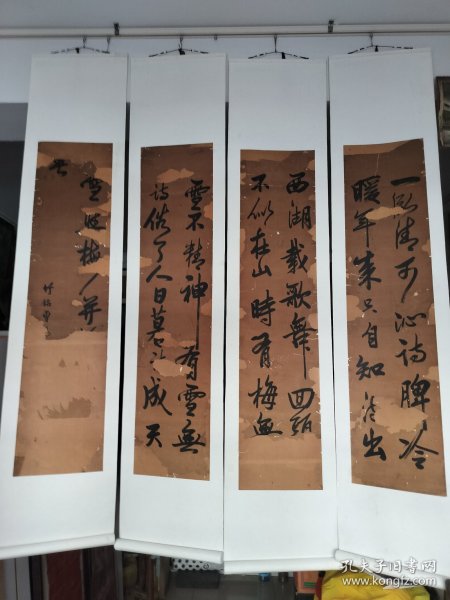 一泓清可沁詩脾冷
暖年來只自知流出
西湖載歌舞回頭
不似在山時有梅無
雪不精神有雪無
詩俗了人日暮詩成天
雪與梅并
孔夫子旧书网
www.kongfz.com